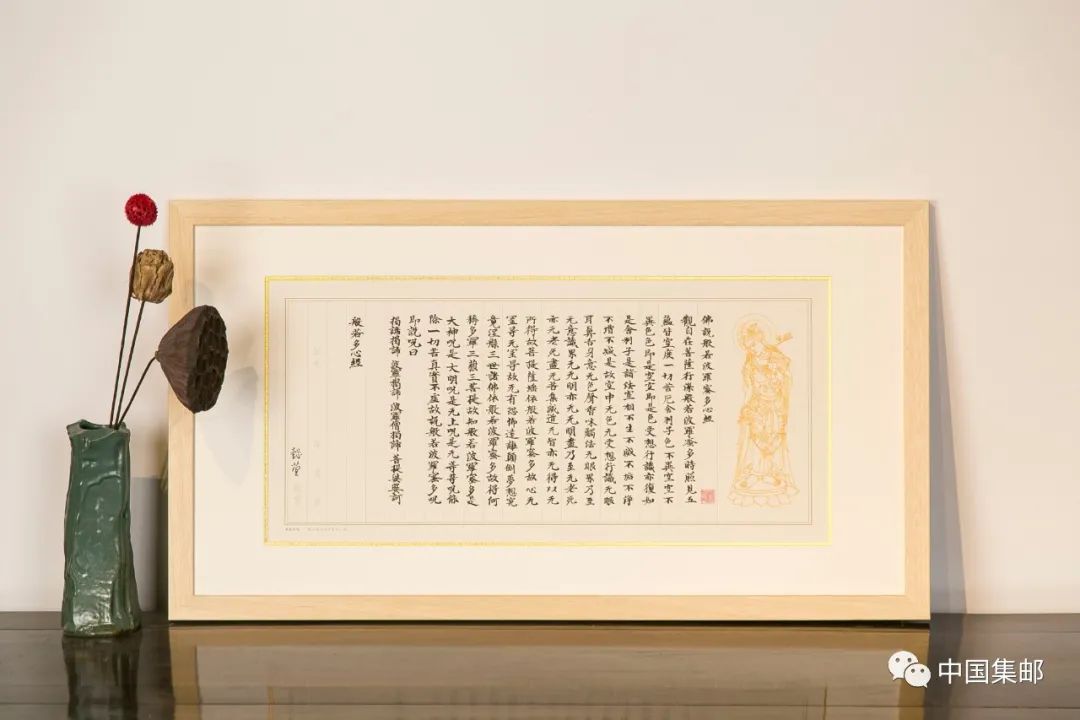 佛說般若波羅蜜多心經
觀自在菩薩行深般若波羅蜜多時照見五
蘊皆空度一切苦厄舍利子色不異空空不
異色色即是空空即是色受想行識亦復如
是舍利子是諸法空相不生不滅不垢不淨
不增不減是故空中无色无受想行識无眼
耳鼻舌身意无色聲香味觸法无眼界乃至
无意識界无无明亦无无明盡乃至无老死
亦无老死盡无苦集滅道无智亦无得以无
所得故菩提薩埵依般若波羅蜜多故心无
罣㝵无罣㝵故无有恐怖遠離顛倒夢想究
竟涅槃三世諸佛依般若波羅蜜多故得阿
耨多羅三藐三菩提故知般若波羅蜜多是
大神呪是大明呪是无上呪是无等等呪能
除一切苦真實不虛故說般若波羅蜜多呪
即說呪曰
揭諦揭諦 波羅揭諦 波羅僧揭諦 菩提娑婆訶
般若多心經
中国集邮